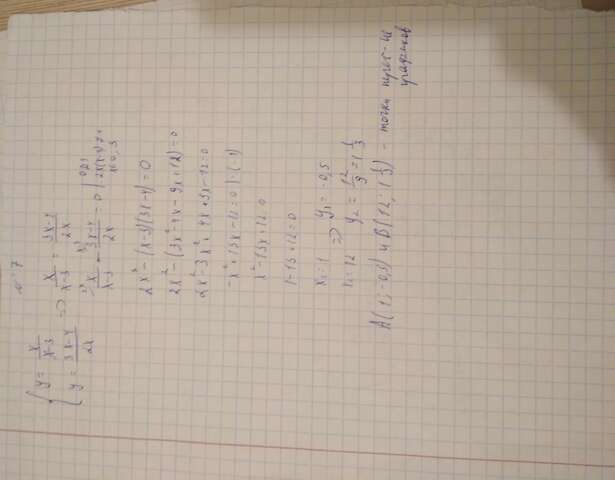 № 7
{ y = x/(x-3)   => x/(x-3) = (3x-4)/2x
{ y = (3x-4)/2x   x/(x-3) - (3x-4)/2x = 0 | · 2x(x-3) ≠ 0
x ≠ 0; 3
2x² - (x-3)(3x-4) = 0
2x² - (3x² - 4x - 9x + 12) = 0
2x² - 3x² + 4x + 9x - 12 = 0
-x² + 13x - 12 = 0 | · (-1)
x² - 13x + 12 = 0
1 - 13 + 12 = 0
x₁ = 1 => y₁ = -0,5
x₂ = 12 y₂ = 12/9 = 1 1/3
A(1; -0,5) и B(12; 1 1/3) - точки
графиков